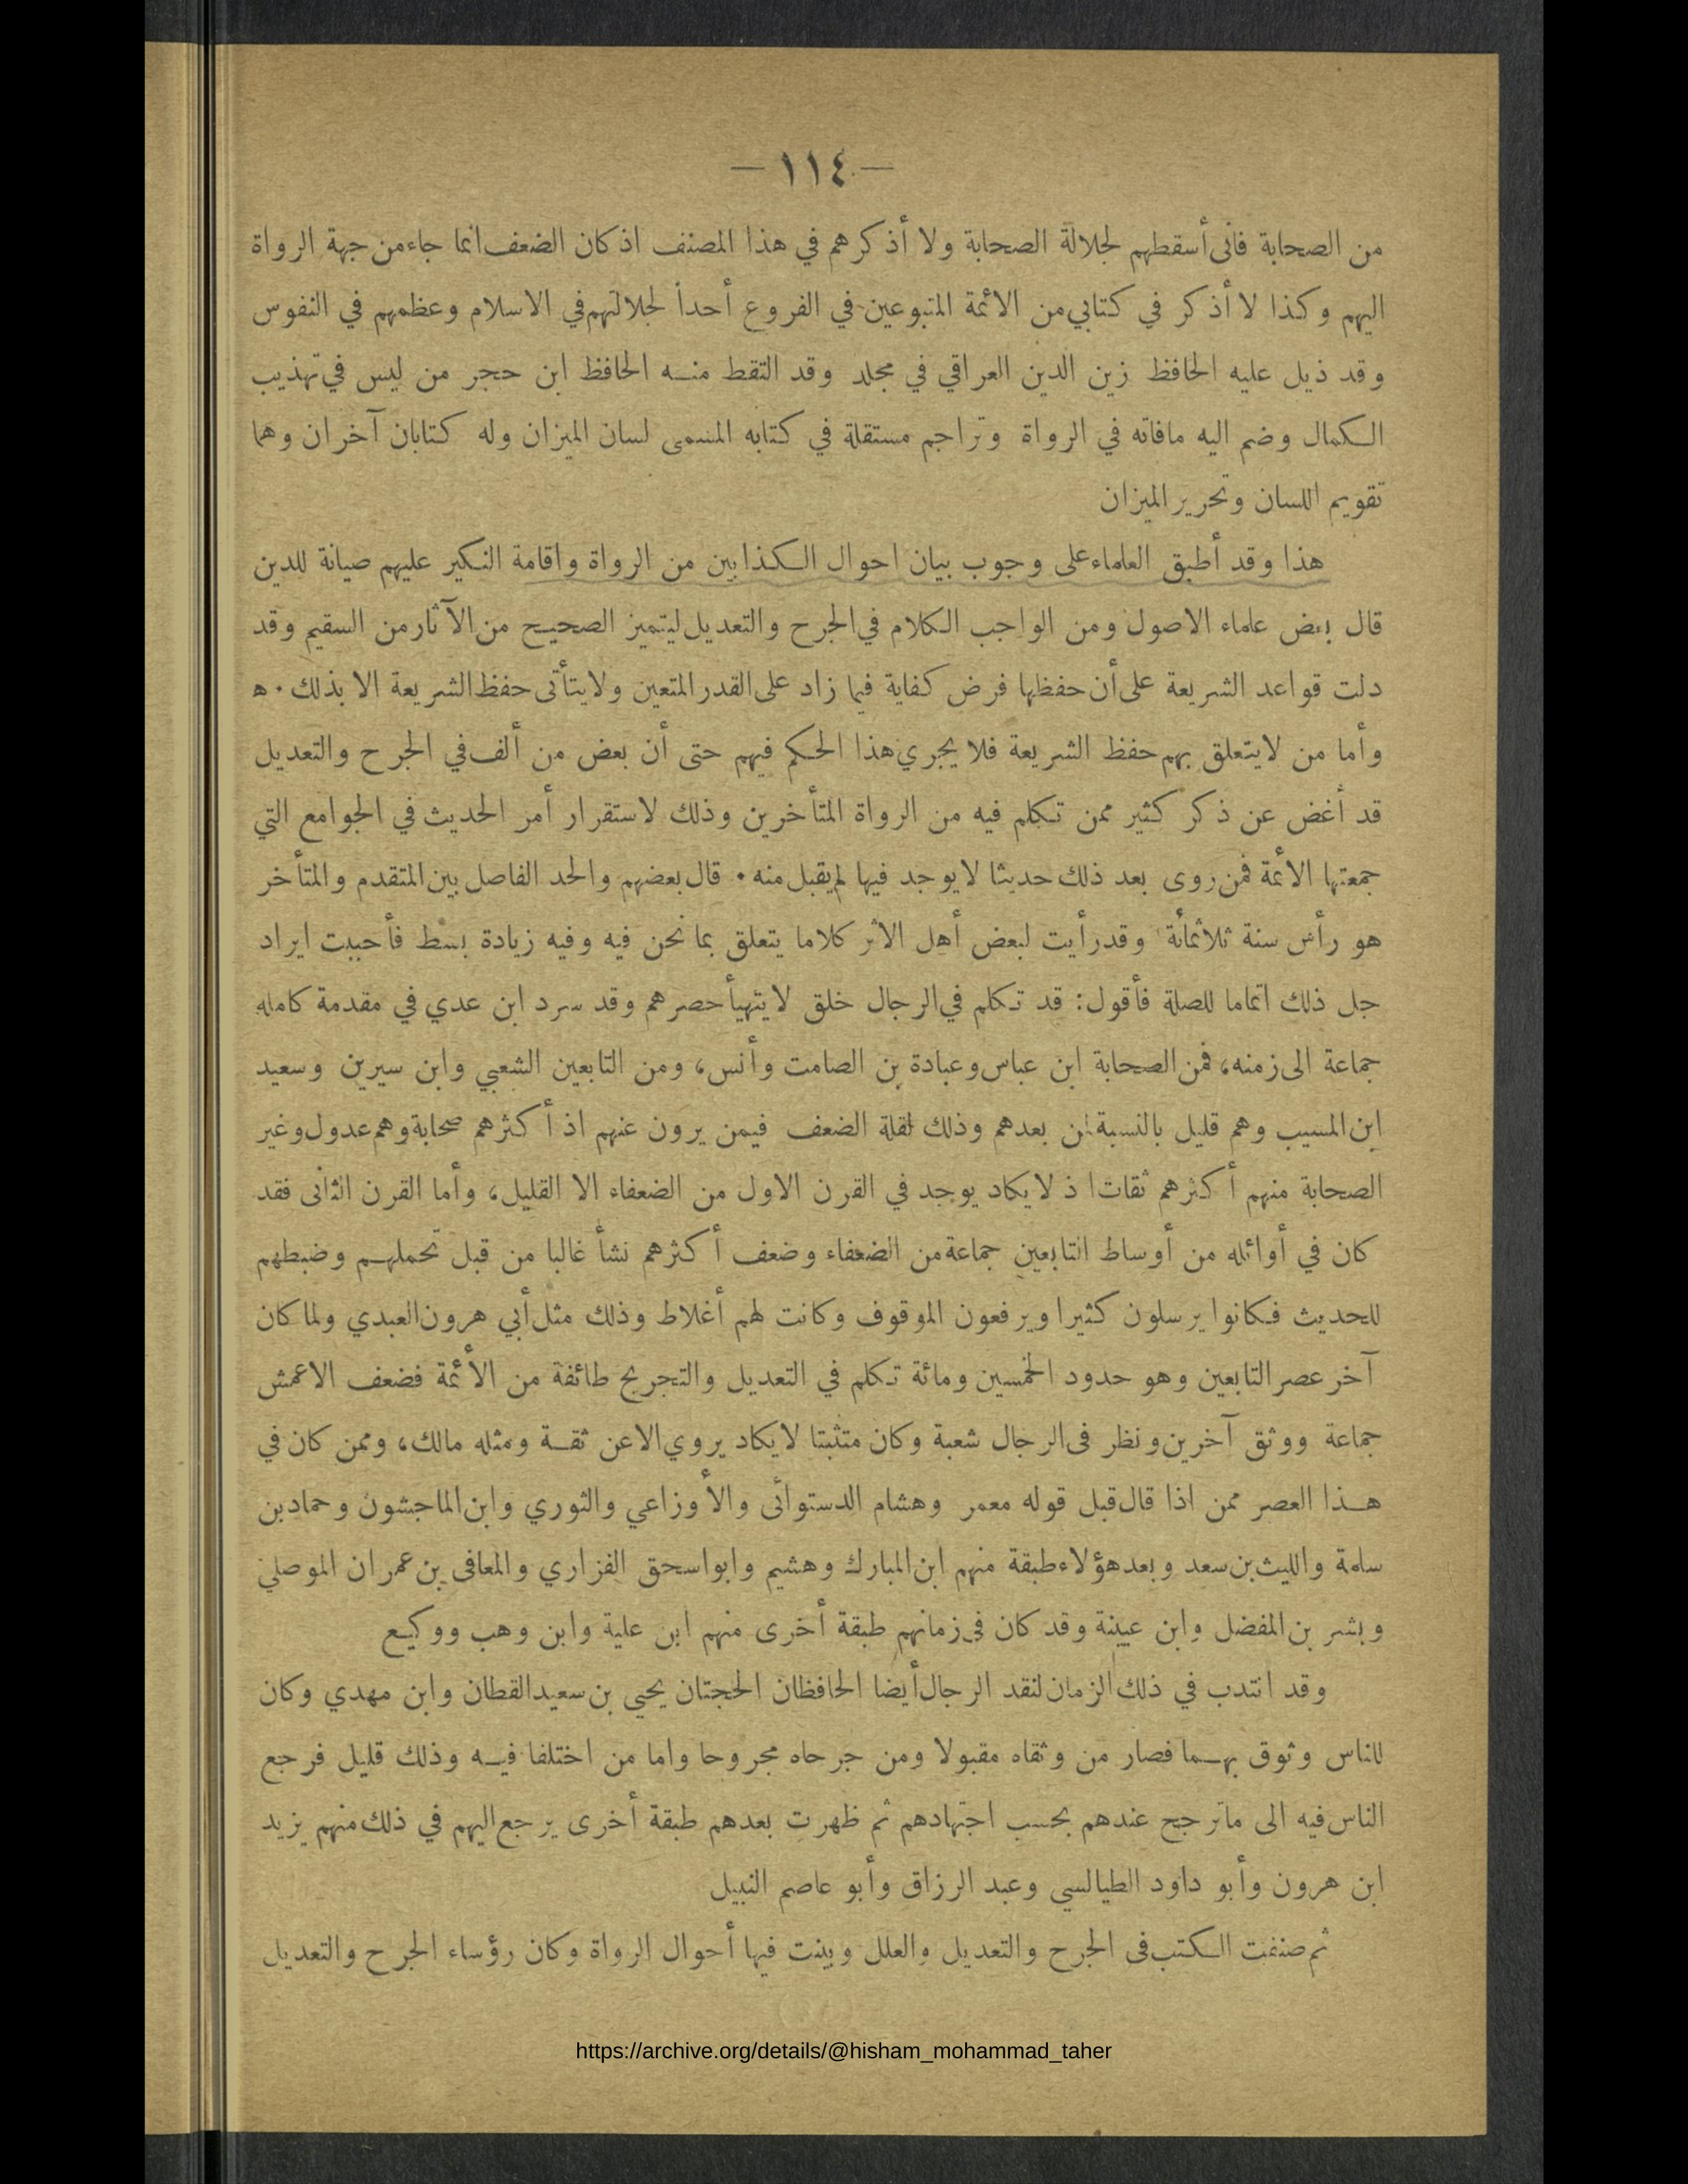 — ١١٤ —
من الصحابة فانى أسقطهم لجلالة الصحابة ولا أذكرهم في هذا المصنف اذ كان الضعف انما جاء من جهة الرواة
اليهم وكذا لا أذكر في كتابي من الائمة المتبوعين في الفروع أحداً لجلالتهم في الاسلام وعظمهم في النفوس
وقد ذيل عليه الحافظ زين الدين العراقي في مجلد وقد التقط منه الحافظ ابن حجر من ليس في تهذيب
الكمال وضم اليه مافاته في الرواة وتراجم مستقلة في كتابه المسمى لسان الميزان وله كتابان آخران وهما
تقويم اللسان وتحرير الميزان
هذا وقد أطبق العلماء على وجوب بيان احوال الكذابين من الرواة واقامة النكير عليهم صيانة للدين
قال بعض علماء الاصول ومن الواجب الكلام في الجرح والتعديل ليتميز الصحيح من الآثار من السقيم وقد
دلت قواعد الشريعة على أن حفظها فرض كفاية فيما زاد على القدر المتعين ولا يتأتى حفظ الشريعة الا بذلك . ه
وأما من لا يتعلق بهم حفظ الشريعة فلا يجري هذا الحكم فيهم حتى أن بعض من ألف في الجرح والتعديل
قد أغض عن ذكر كثير ممن تكلم فيه من الرواة المتأخرين وذلك لاستقرار أمر الحديث في الجوامع التي
جمعتها الائمة فمن روى بعد ذلك حديثا لا يوجد فيها لم يقبل منه . قال بعضهم والحد الفاصل بين المتقدم والمتأخر
هو رأس سنة ثلاثمائة وقد رأيت لبعض أهل الاثر كلاما يتعلق بما نحن فيه وفيه زيادة بسط فأحببت ايراد
جل ذلك اتماما للصلة فأقول: قد تكلم في الرجال خلق لا يتهيأ حصرهم وقد سرد ابن عدي في مقدمة كامله
جماعة الى زمنه، فمن الصحابة ابن عباس وعبادة بن الصامت وأنس، ومن التابعين الشعبي وابن سيرين وسعيد
ابن المسيب وهم قليل بالنسبة لمن بعدهم وذلك لقلة الضعف فيمن يرون عنهم اذ أكثرهم صحابة وهم عدول وغير
الصحابة منهم أكثرهم ثقات اذ لا يكاد يوجد في القرن الاول من الضعفاء الا القليل، وأما القرن الثانى فقد
كان في أوائله من أوساط التابعين جماعة من الضعفاء وضعف أكثرهم نشأ غالبا من قبل تحملهم وضبطهم
للحديث فكانوا يرسلون كثيرا ويرفعون الموقوف وكانت لهم أغلاط وذلك مثل أبي هرون العبدي ولما كان
آخر عصر التابعين وهو حدود الخمسين ومائة تكلم في التعديل والتجريح طائفة من الأئمة فضعف الاعمش
جماعة ووثق آخرين ونظر فى الرجال شعبة وكان متثبتا لا يكاد يروي الا عن ثقة ومثله مالك، وممن كان في
هذا العصر ممن اذا قال قبل قوله معمر وهشام الدستوائى والأوزاعي والثوري وابن الماجشون وحماد بن
سلمة والليث بن سعد وبعد هؤلاء طبقة منهم ابن المبارك وهشيم وابو اسحق الفزاري والمعافى بن عمران الموصلي
وبشر بن المفضل وابن عيينة وقد كان في زمانهم طبقة أخرى منهم ابن علية وابن وهب ووكيع
وقد انتدب في ذلك الزمان لنقد الرجال أيضا الحافظان الحجتان يحيى بن سعيد القطان وابن مهدي وكان
للناس وثوق بهما فصار من وثقاه مقبولا ومن جرحاه مجروحا واما من اختلفا فيه وذلك قليل فرجع
الناس فيه الى ماترجح عندهم بحسب اجتهادهم ثم ظهرت بعدهم طبقة أخرى يرجع اليهم في ذلك منهم يزيد
ابن هرون وأبو داود الطيالسي وعبد الرزاق وأبو عاصم النبيل
ثم صنفت الكتب فى الجرح والتعديل والعلل وبينت فيها أحوال الرواة وكان رؤساء الجرح والتعديل
https://archive.org/details/@hisham_mohammad_taher